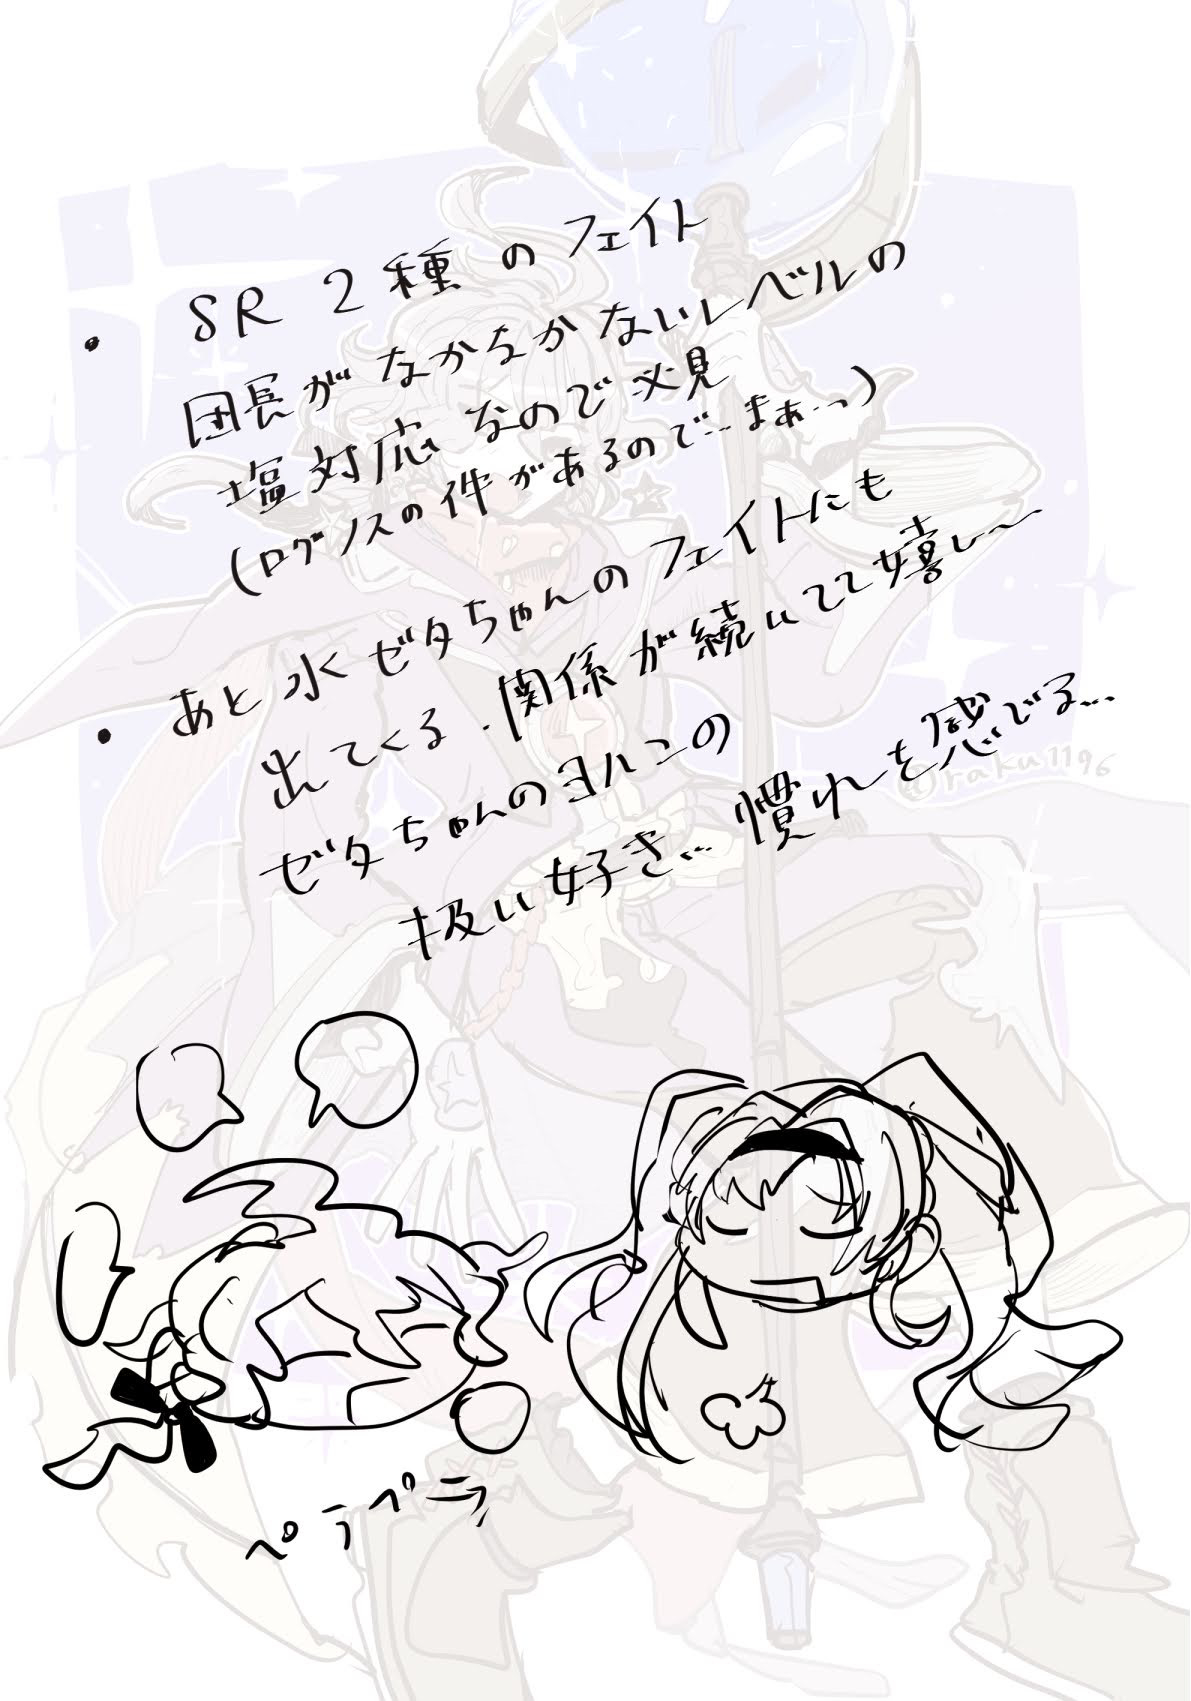 ・SR 2種のフェイト
団長がなかなかないレベルの
塩対応なので必見
(ログノスの件があるので…まぁ…っ)
・あと水ゼタちゃんのフェイトにも
出てくる.関係が続いてて嬉し〜
ゼタちゃんのヨハンの
扱い好き… 慣れを感じる…
@raku1196
ペラペラ